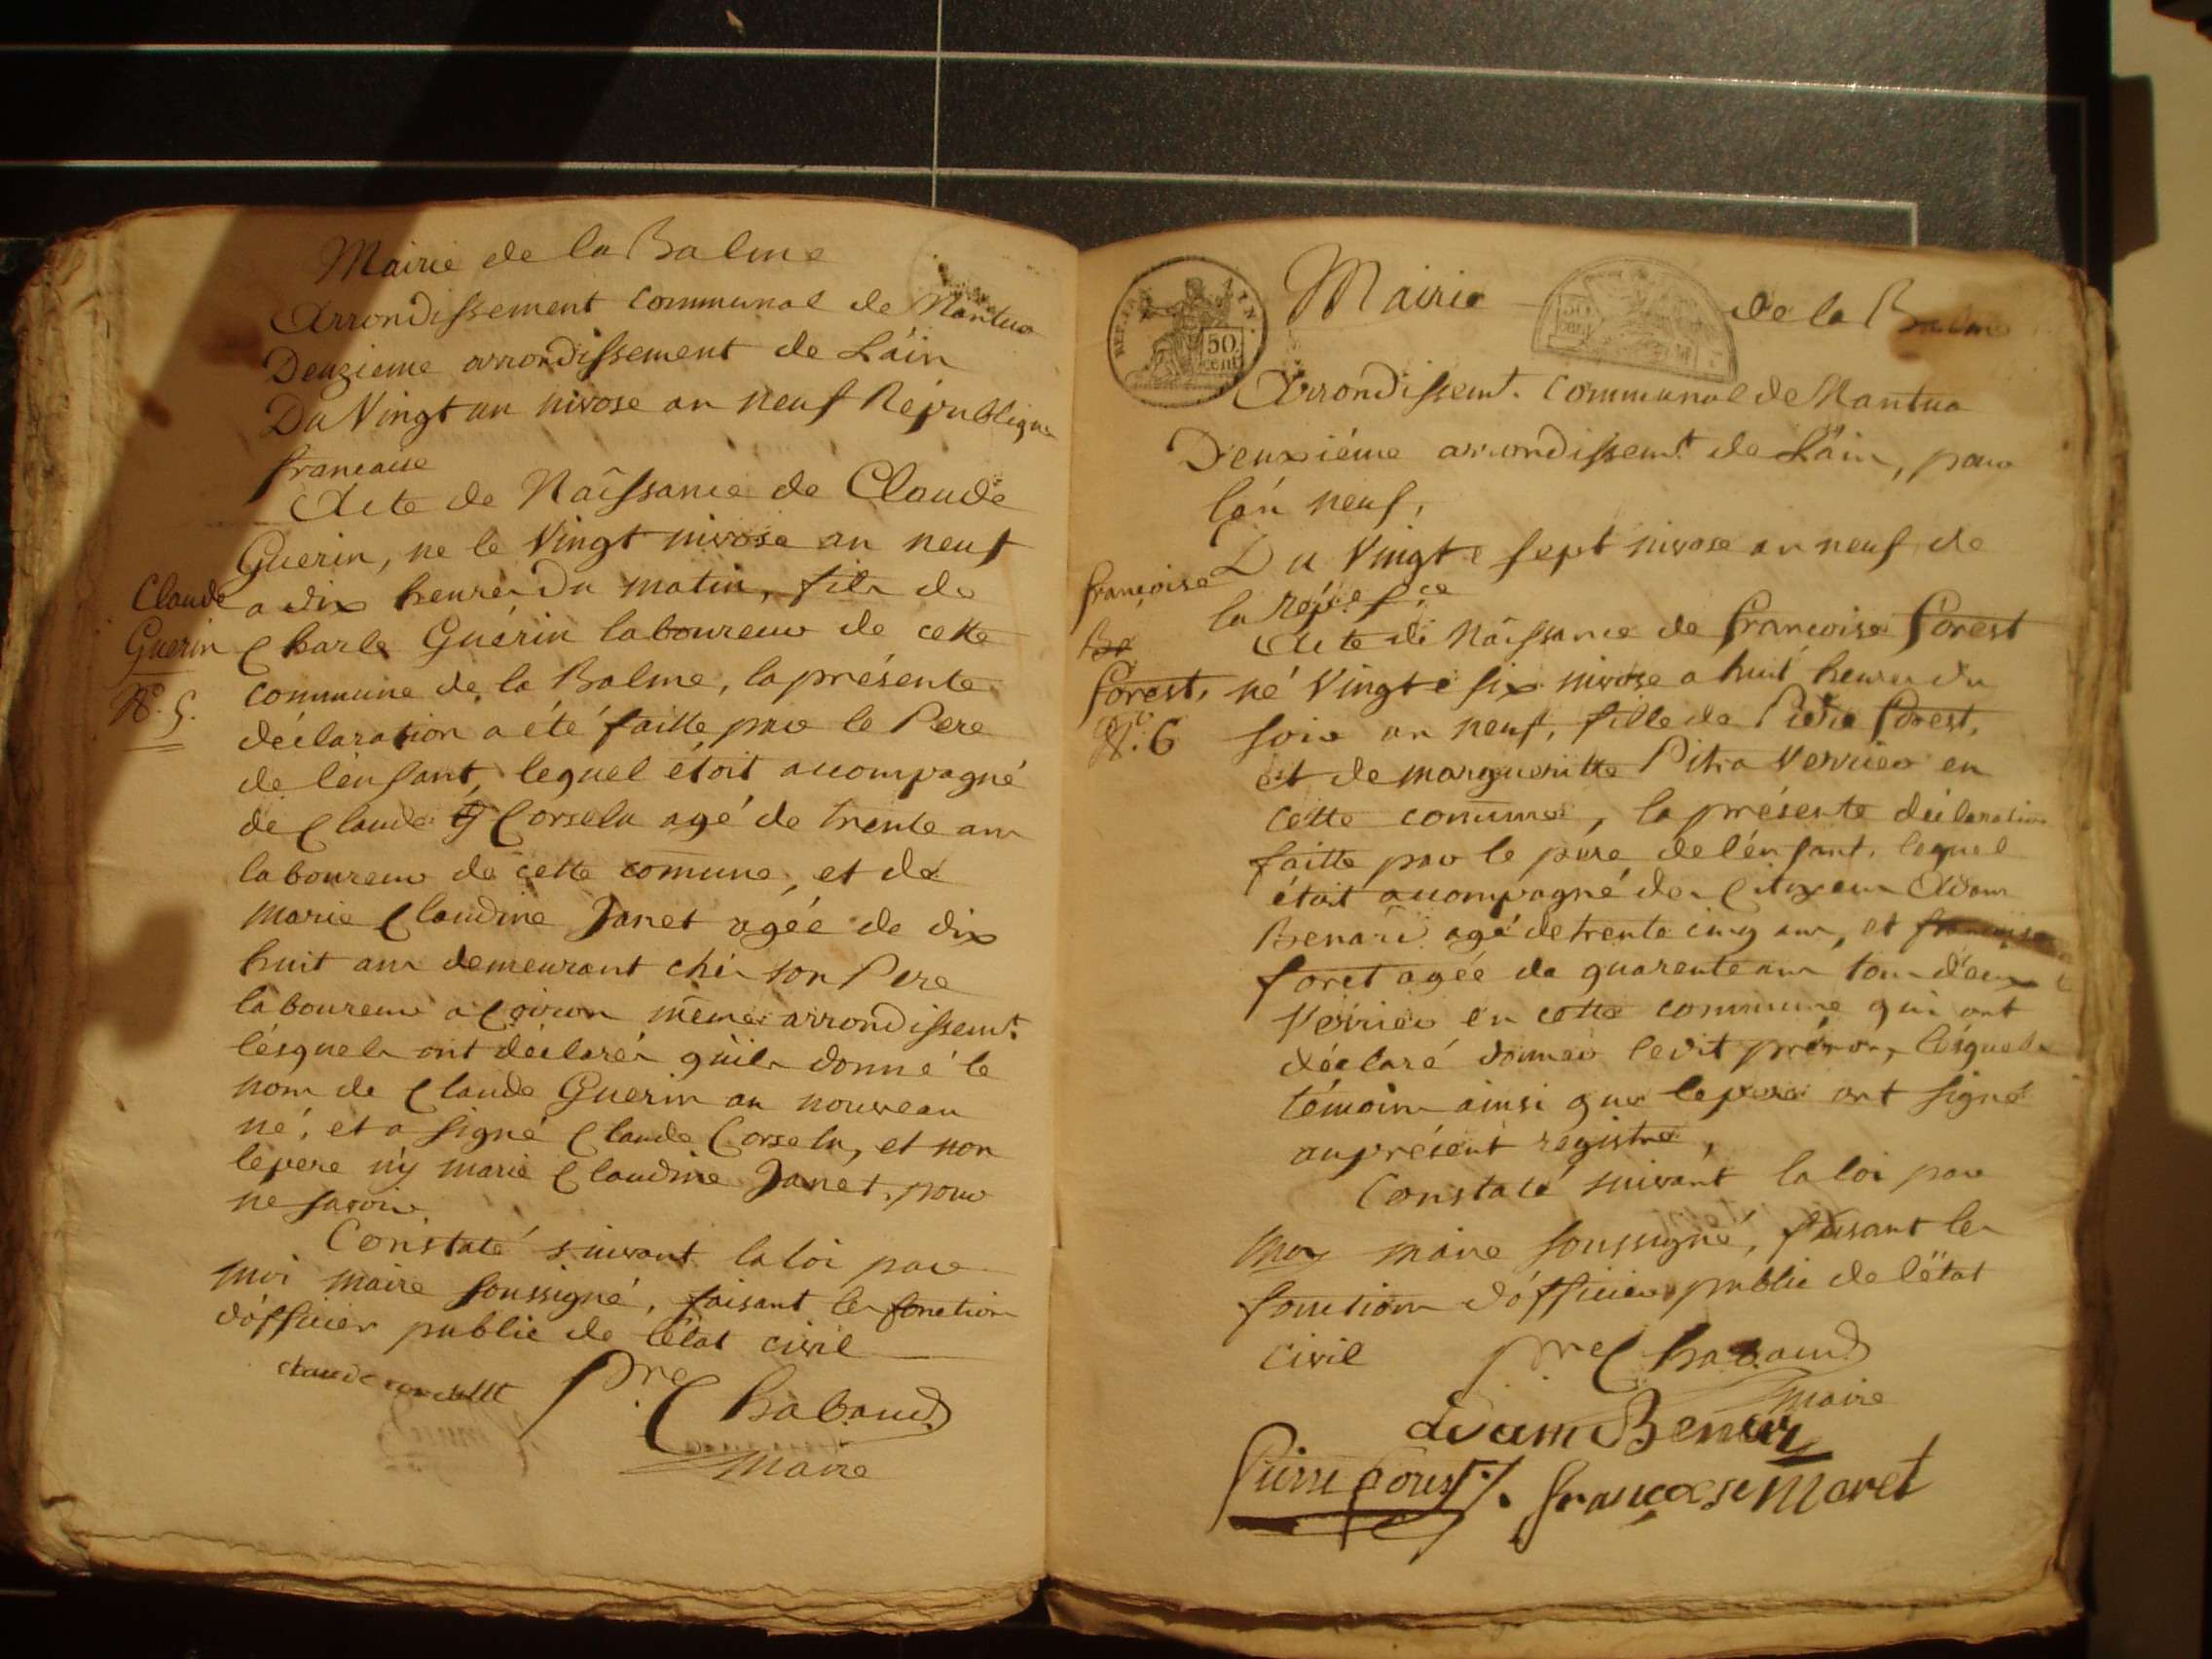 Mairie de la Balme
Arrondissement communal de Nantua
Deuzieme arrondissement de Láin
Du Vingt un nivose an neuf République
francaise
Acte de Naissance de Claude
Guerin, ne le Vingt nivose an neuf
Claude
Guerin
No. 5.
a dix heures du matin, fils de
Charle Guérin laboureur de cette
commune de la Balme, la présente
déclaration a été faitte par le Pere
de l'enfant, lequel étoit accompagné
de Claude Corselu agé de trente ans
laboureur de cette comune, et de
Marie Claudine Janet agée de dix
huit ans demeurant chés son Pere
laboureur a même arrondissemt.
lésquels ont déclarés qu'ils donné le
nom de Claude Guerin au nouveau
né, et a signé Claude Corselu, et non
le pere n'y marie Claudine Janet, pour
ne savoir
Constaté suivant la loi par
moi maire soussigné, faisant les fonction
d'officier public de l'état civil
claude
Pre Chabaud
Maire
REP. FRA.
50
cent
Mairie de la Balme
50
Arrondissemt. communal de Nantua
Deuxiéme arrondissemt de Láin, pour
lán neuf,
Du Vingt e sept nivose an neuf de
la répe fce
françoise
forest,
No. 6
Acte de Naissance de françoise forest
né Vingt e six nivose a huit heures du
soir an neuf, fille de Pierre forest,
et de margueritte Pitra Verrier en
cette comune, la présente déclaration
faitte par le pere de l'énfant, lequel
était accompagné des Citoyens Adam
Benari agé de trente cinq ans, et francoise
foret agée de quarente ans tous deux
Verrier en cette commune qui ont
déclaré donner le dit prénom, lésquels
témoins ainsi que le pere ont signé
au présent registre,
Constaté suivant la loi par
moy maire soussigné, faisant les
fonction d'officier public de l'état
civil
Pre Chabaud
Maire
adam Benary
Pierre forest françoise Maret